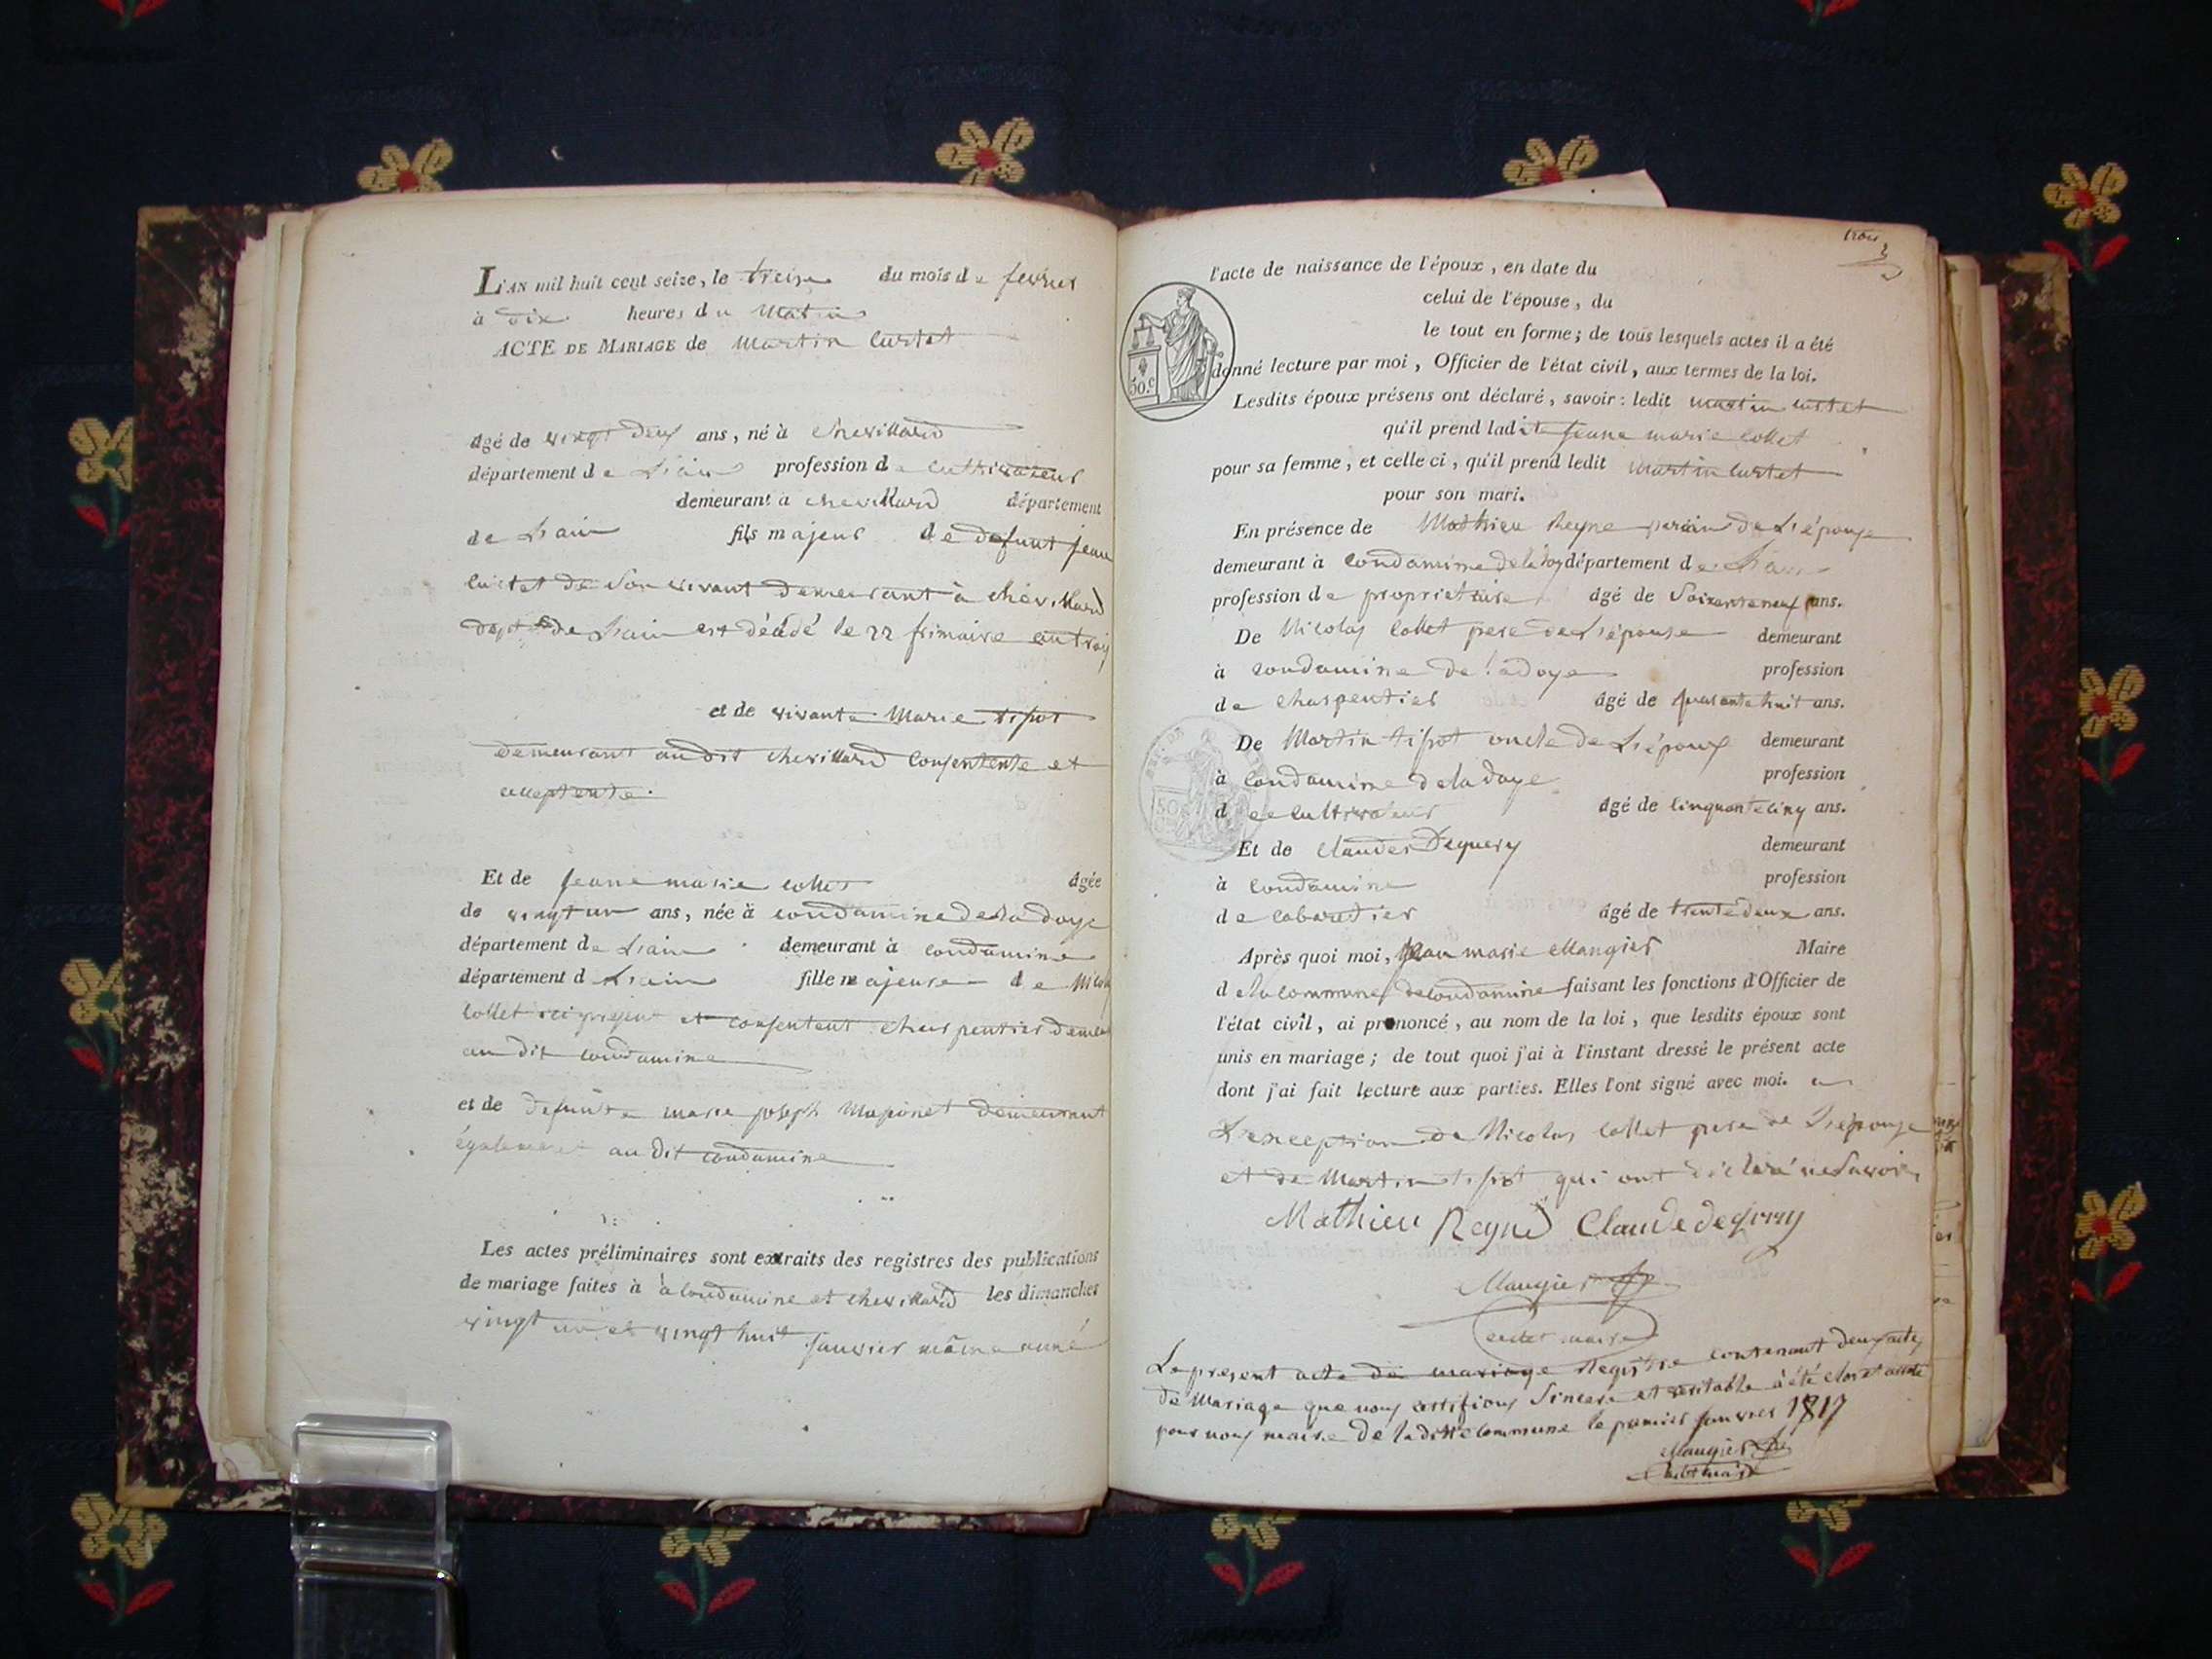 L'AN mil huit cent seize, le treize du mois de fevrier
à dix heures du Matin
ACTE DE MARIAGE de Martin Curtet
âgé de vingt deux ans, né à Chevillard
département de L'ain profession de Cultivateur
demeurant à Chevillard département
de L'ain fils majeur de defunt jean
Curtet de son vivant demeurant à Chevillard
dept de L'ain est décédé le 22 frimaire an trois
et de vivante Marie tissot
demeurant audit Chevillard Consentente et
acceptente.
Et de jeane marie Collet âgée
de vingt un ans, née à Condamine de la doye
département de L'ain demeurant à Condamine
département d L'ain fille majeure de Nicolas
Collet ici present et Consentent charpentier
au dit Condamine
et de defunte marie joseph demeurant
également au dit Condamine
Les actes préliminaires sont extraits des registres des publications
de mariage faites à à Condamine et Chevillard les dimanches
vingt un et vingt huit janvier même anné
trois
l'acte de naissance de l'époux, en date du
celui de l'épouse, du
le tout en forme; de tous lesquels actes il a été
donné lecture par moi, Officier de l'état civil, aux termes de la loi.
50.c
Lesdits époux présens ont déclaré, savoir: ledit martin Curtet
qu'il prend ladite jeane marie Collet
pour sa femme, et celle ci, qu'il prend ledit Martin Curtet
pour son mari.
En présence de Mathieu Reyne parain de L'épouse
demeurant à Condamine de la doy département de L'ain
profession de proprietaire âgé de Soixante neuf ans.
De Nicolas Collet pere de L'épouse demeurant
à Condamine de ladoye profession
de Charpentier âgé de quarante huit ans.
De Martin tissot oncle de L'époux demeurant
à Condamine de la doye profession
de Cultivateur âgé de Cinquante Cinq ans.
50
Et de Claude Dequery demeurant
à Condamine profession
de Cabaretier âgé de trente deux ans.
Après quoi moi, jean marie Maugier Maire
de la Commune de Condamine faisant les fonctions d'Officier de
l'état civil, ai prononcé, au nom de la loi, que lesdits époux sont
unis en mariage; de tout quoi j'ai à l'instant dressé le présent acte
dont j'ai fait lecture aux parties. Elles l'ont signé avec moi.
L'exception de Nicolas Collet pere de L'épouse
et de Martin tissot qui ont déclaré ne Savoir
Mathieu Reyne Claude
Maugier
maire
Le present acte de mariage Registre Contenant deux actes
de Mariage que nous certifions Sincere et veritable à été Clos et arreté
par nous maire de la ditte Commune le premier janvier 1817
Maugier
maire